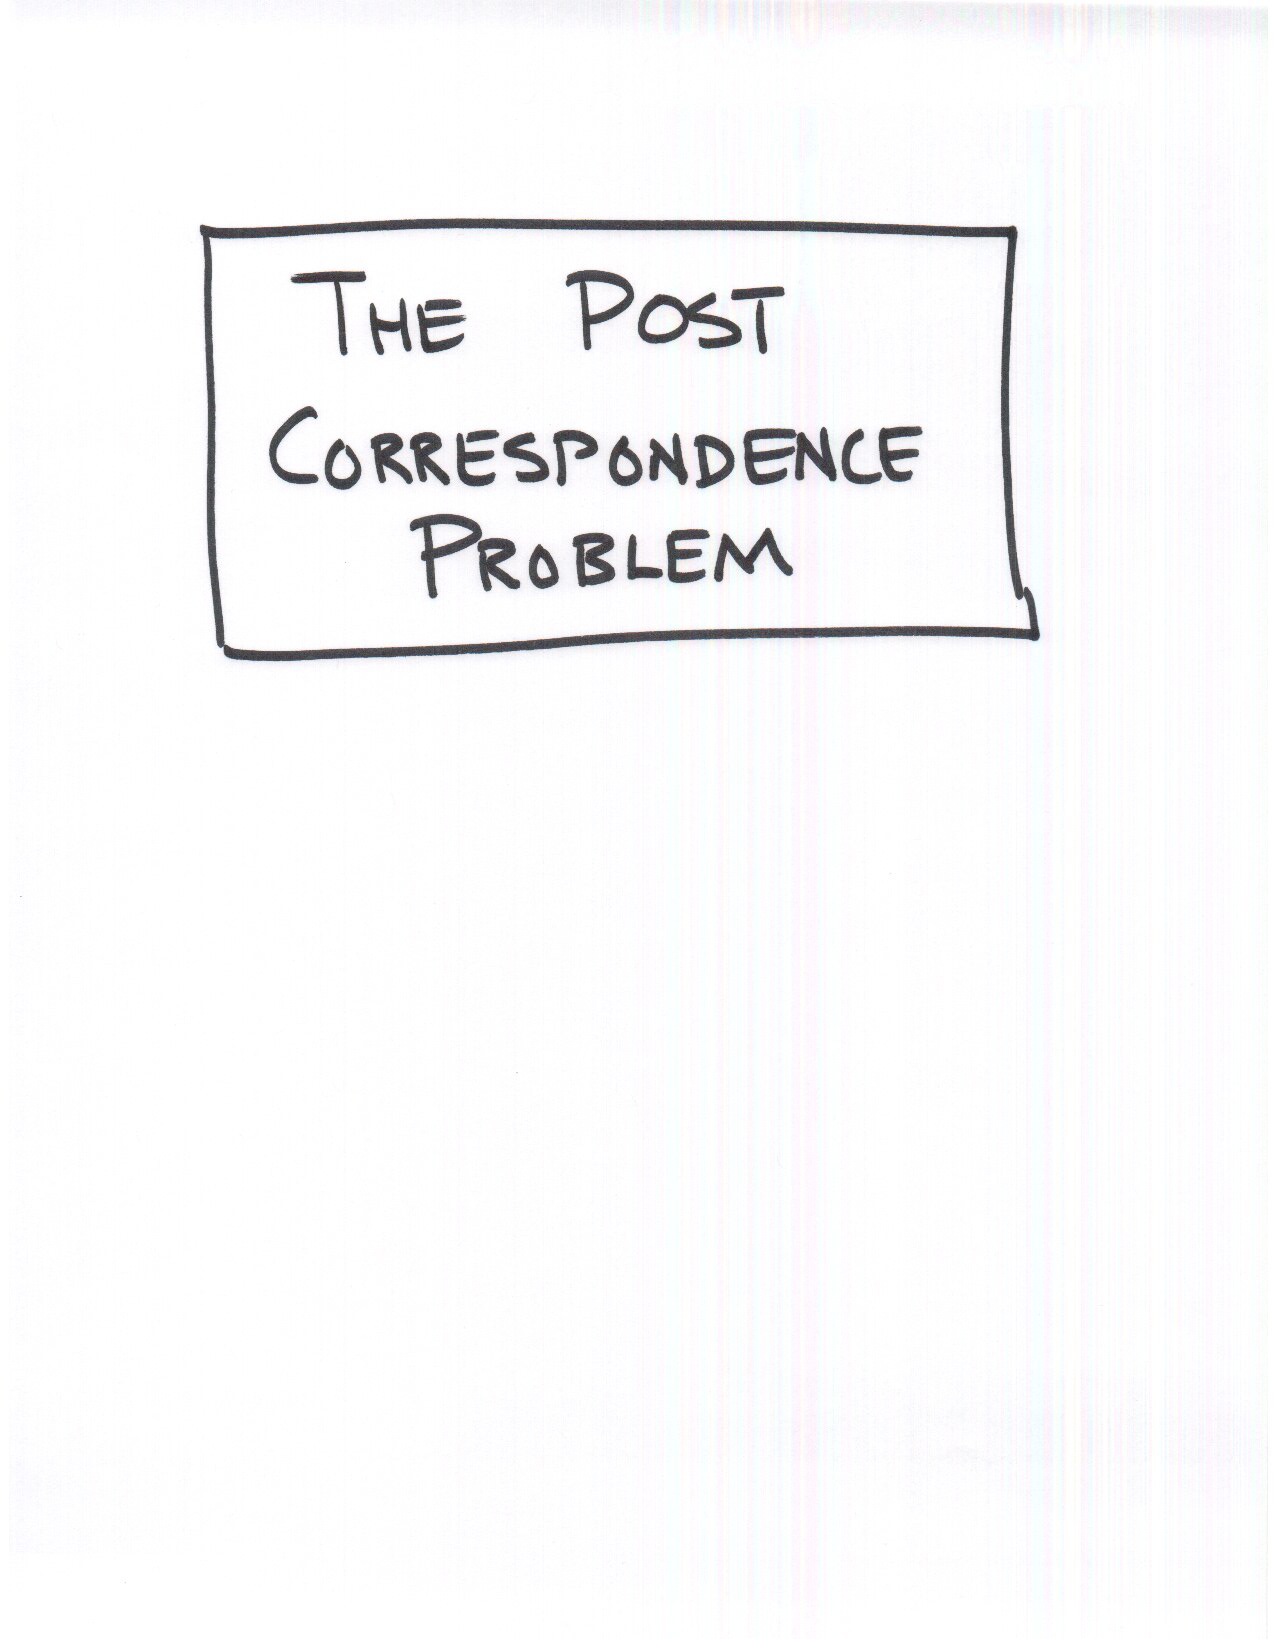 THE POST
CORRESPONDENCE
PROBLEM